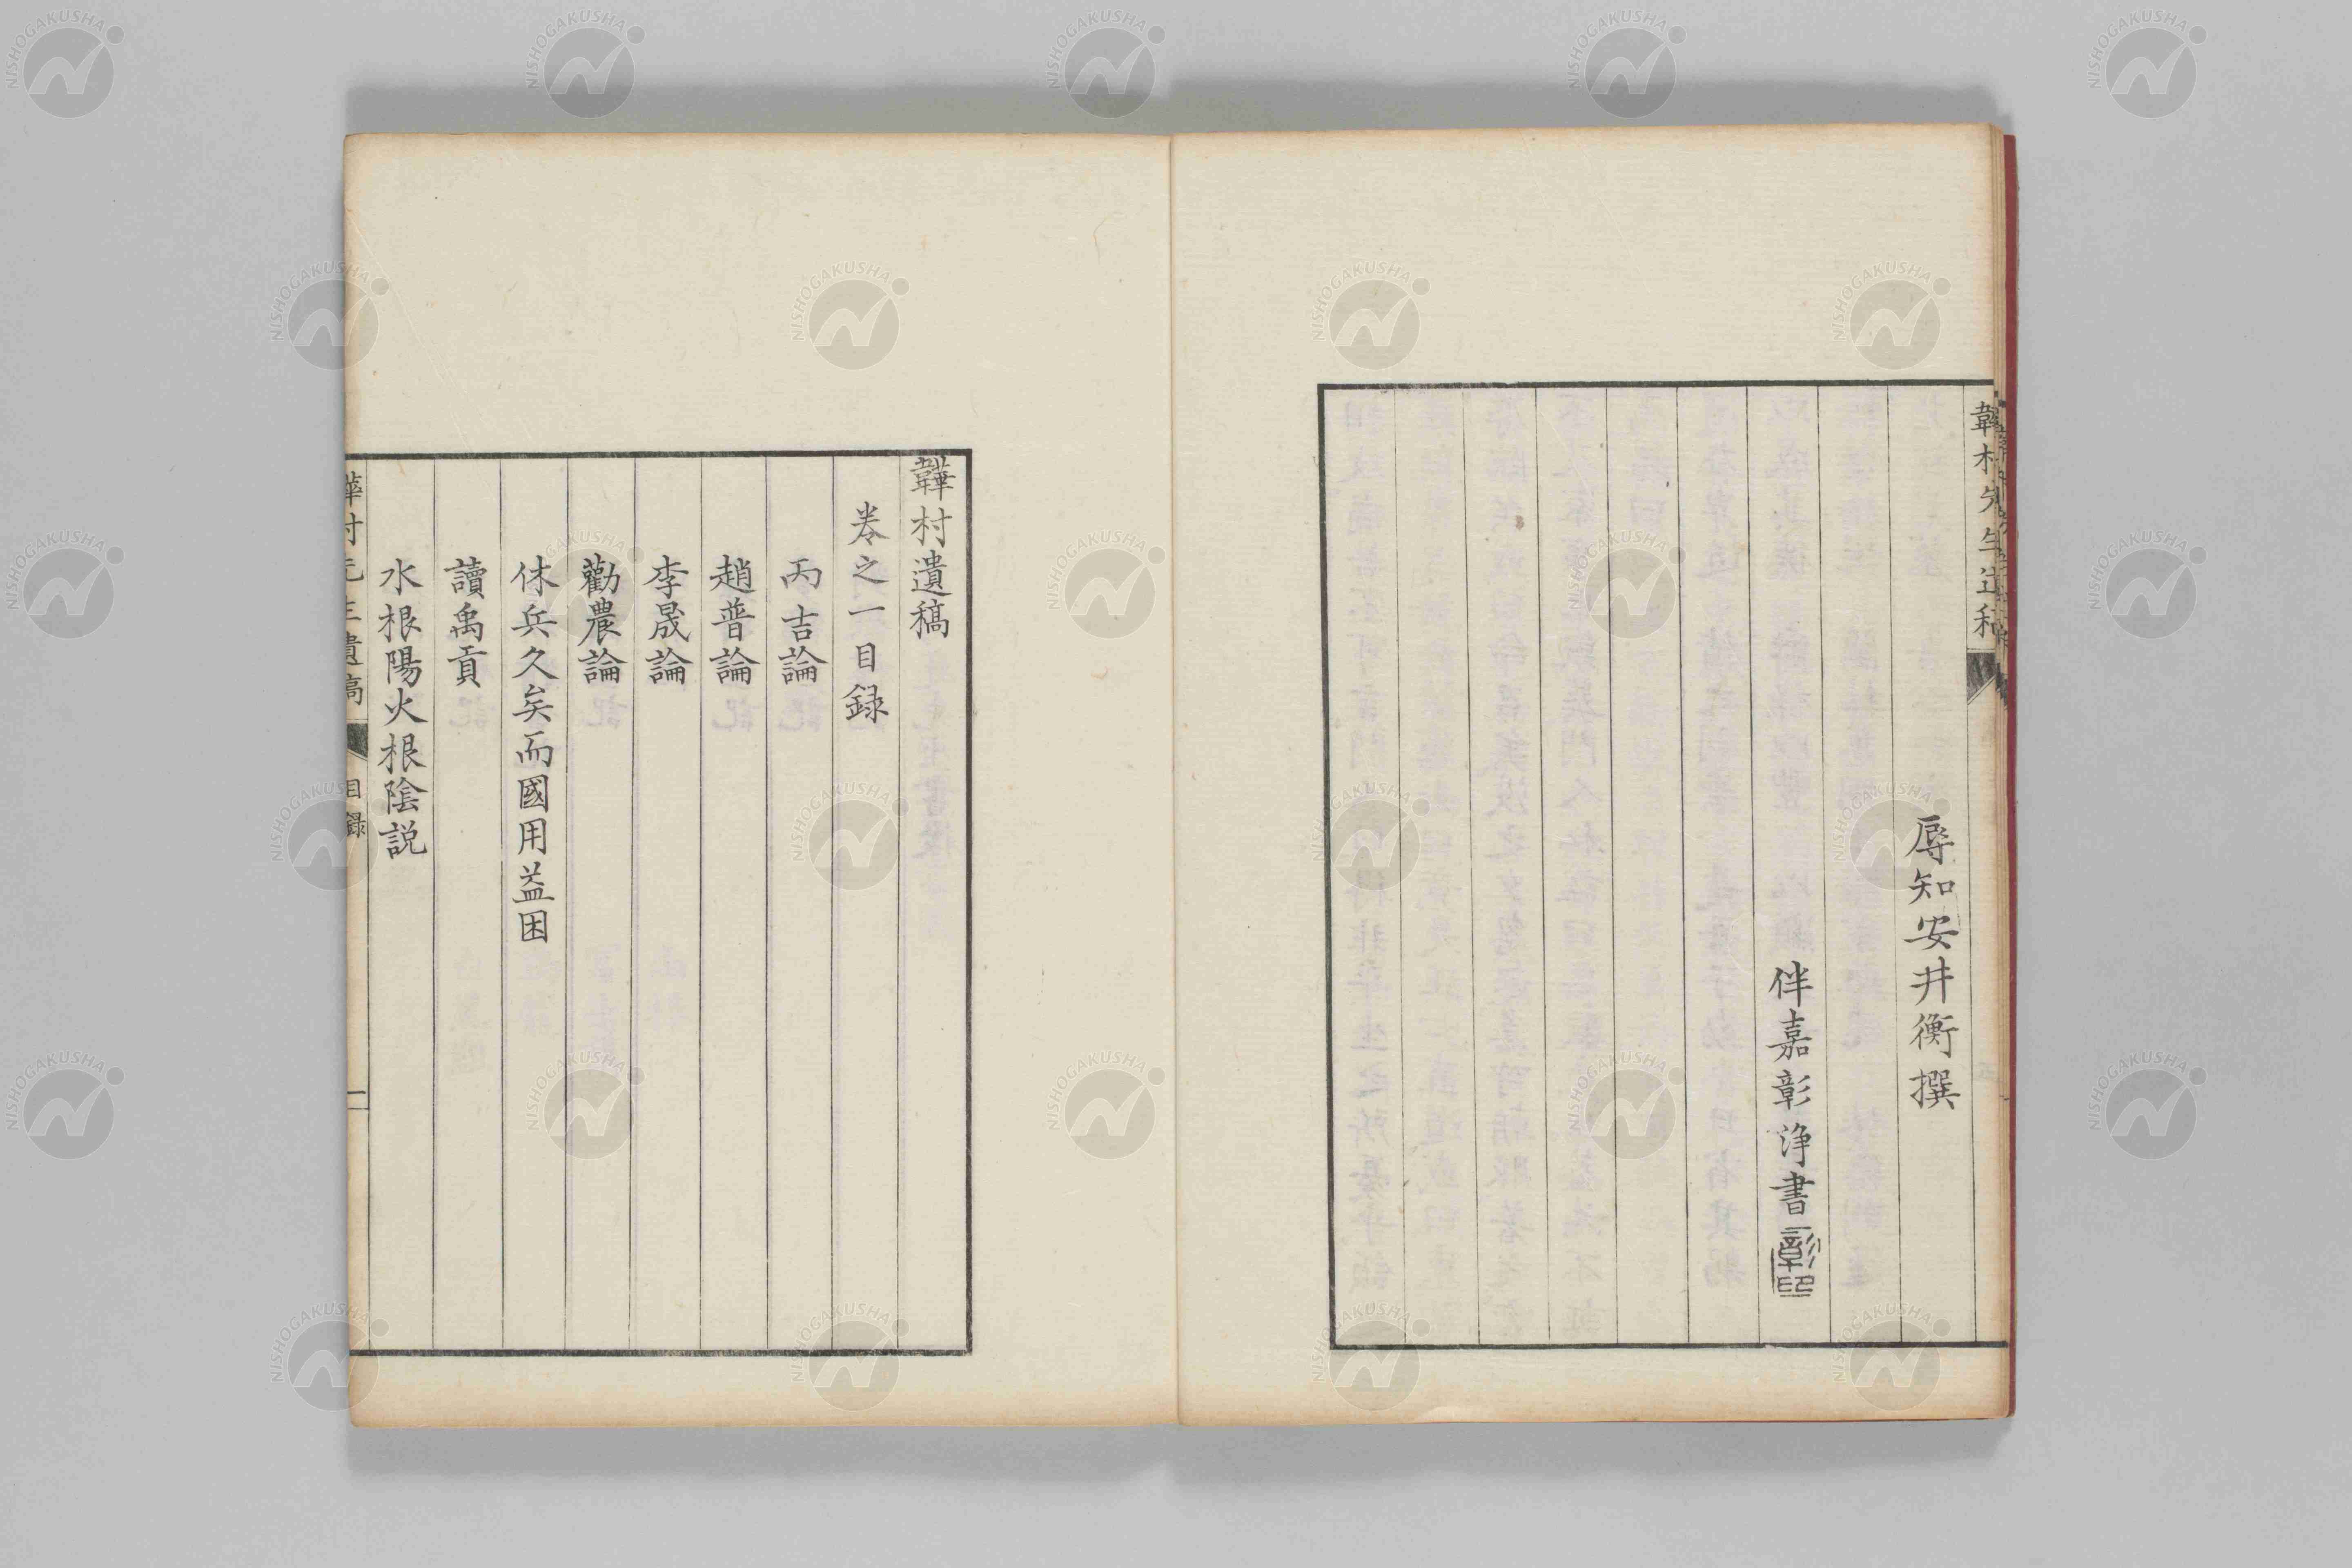 辱知安井衡撰
伴嘉彰浄書
彰印
韡村遺稿
卷之一目録
丙吉論
趙普論
李晟論
勸農論
休兵久矣而國用益困
讀禹貢
水根陽火根陰説
目録
一
NISHOGAKUSHA